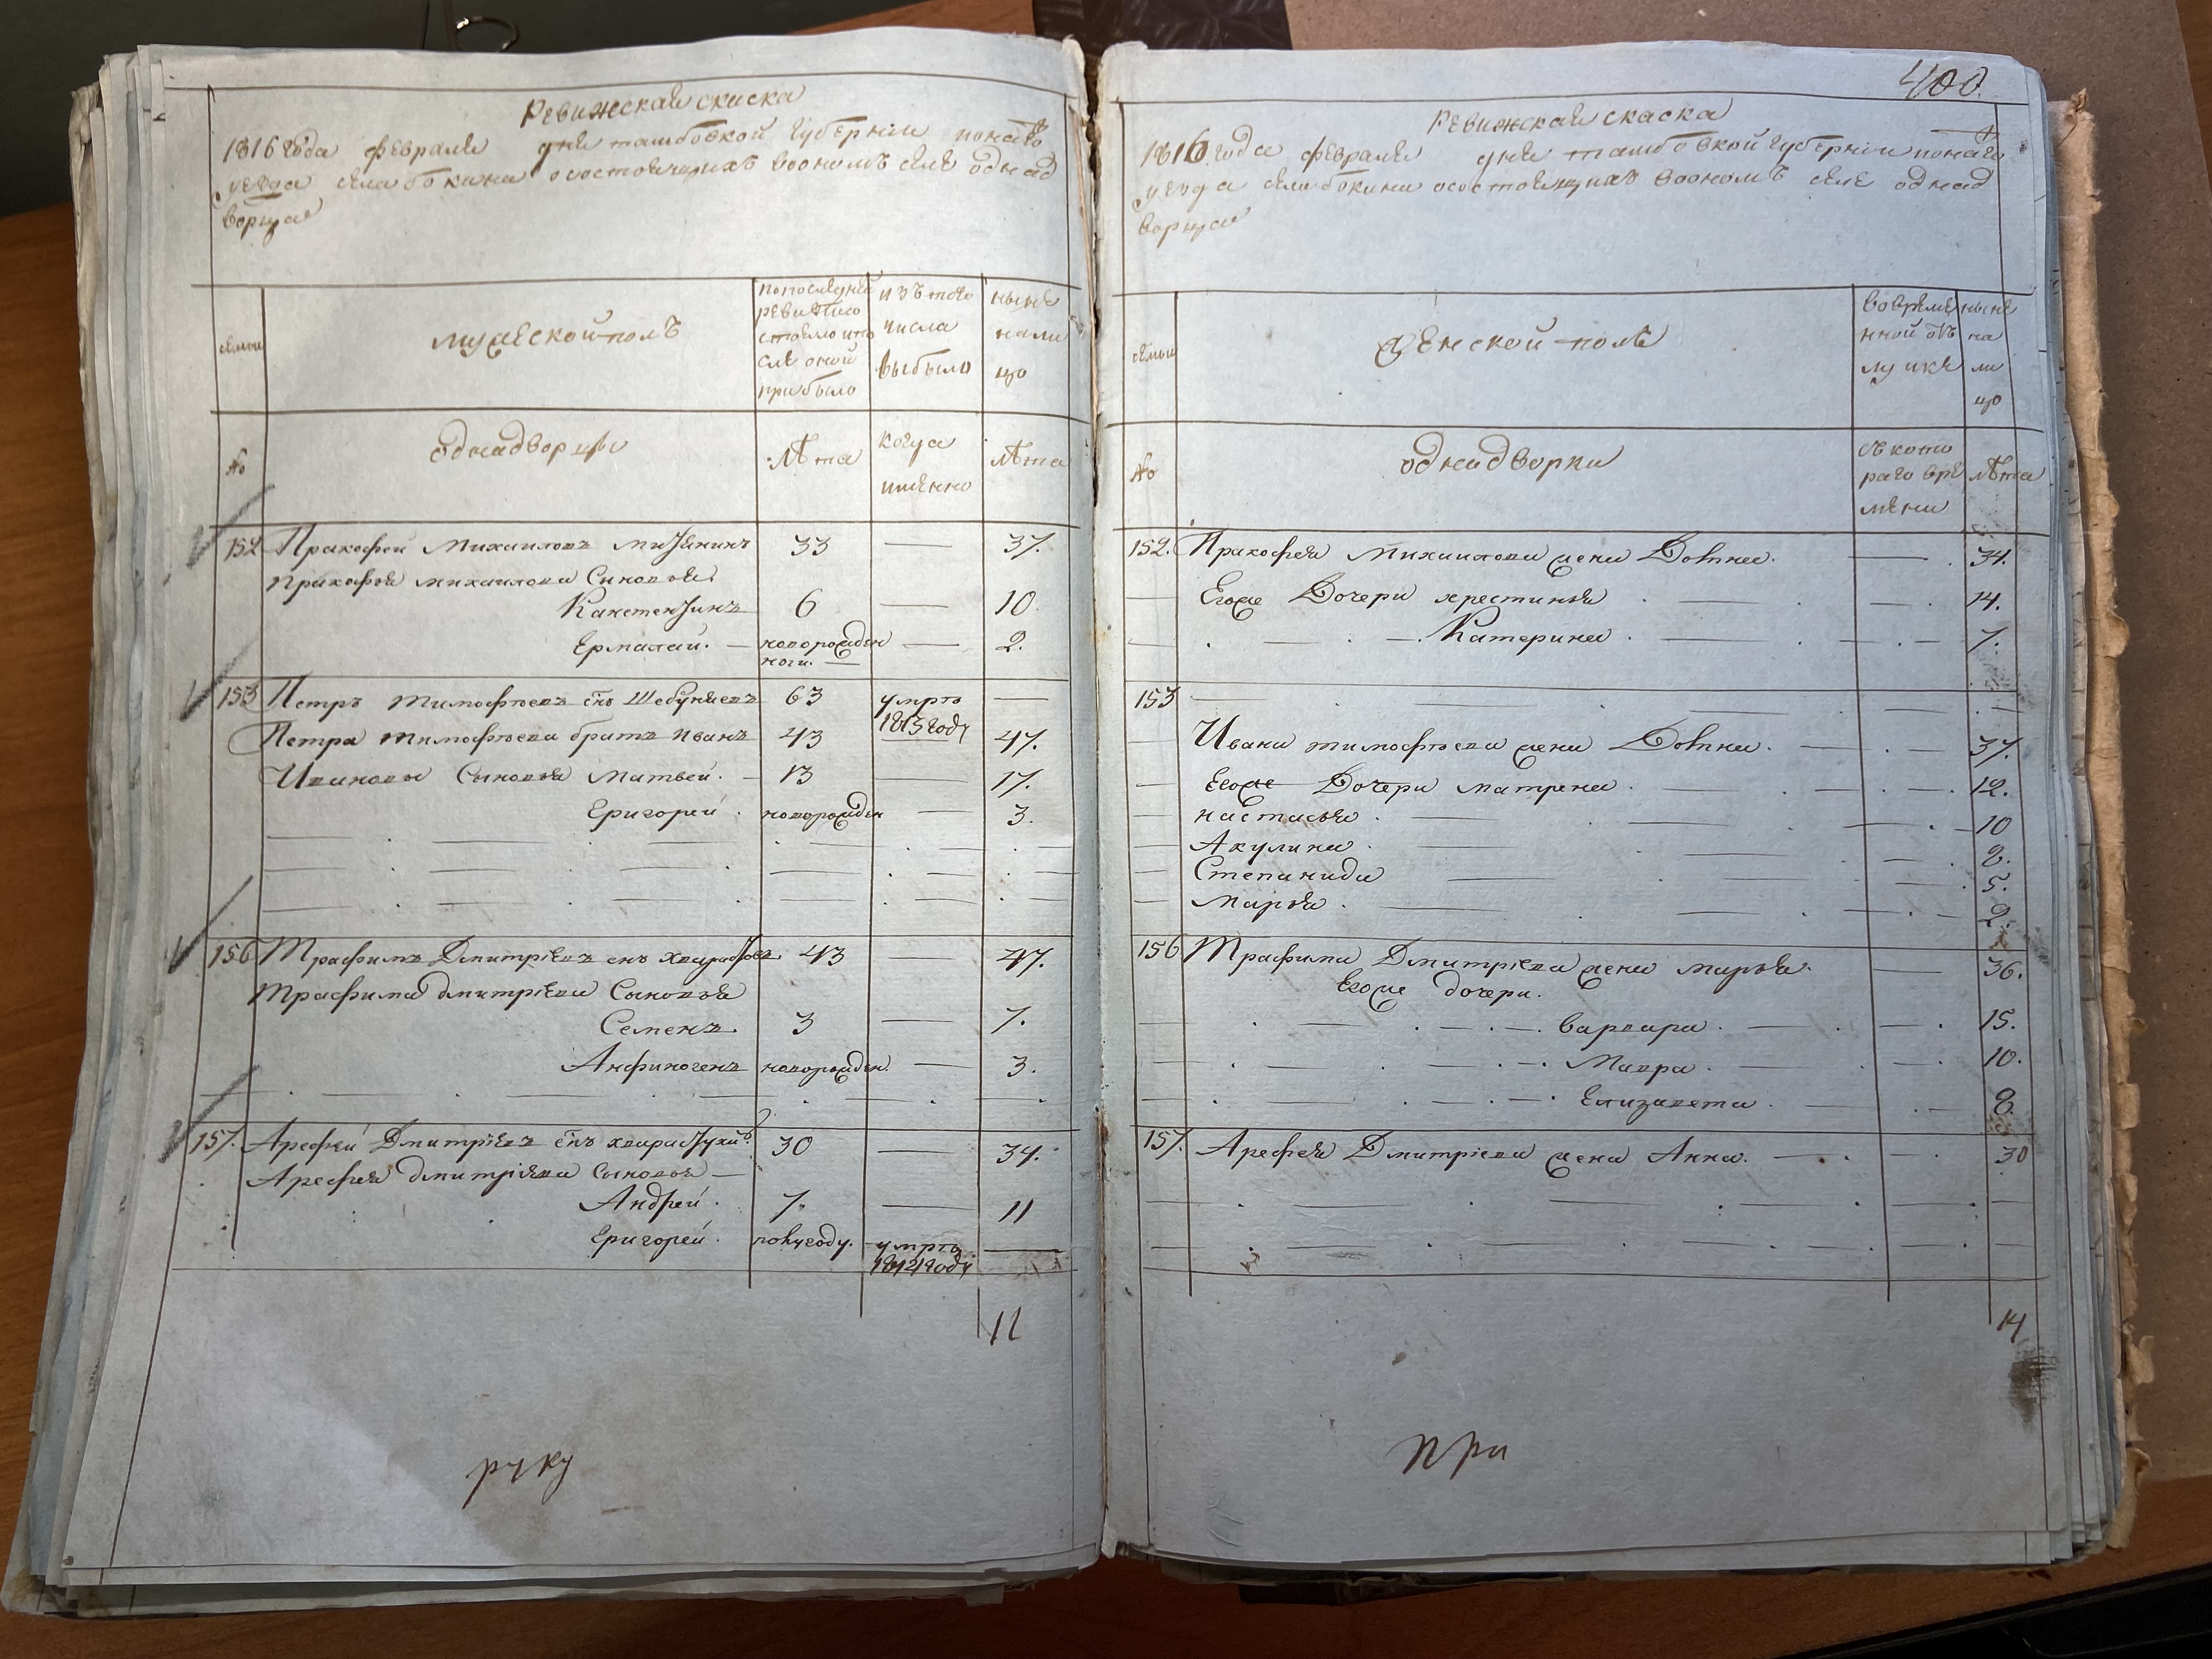 Ревижская скаска
1816 года февраля дня танбовской губернии
уезда села бокина осостоящихъ воономъ селе однад
ворцаѣ
семьи
мужескойполъ
попоследней
ревизіи
состояло ипо
сле оной
прибыло
изътого
числа
выбыло
ныне
нали
цо
№
однадворцы
лѣта
когда
имянно
лѣта
152 Пракофей Михаиловъ 33 — 37.
Пракофья михаилова Сыновья
Канстентинъ 6 — 10.
Ермалай. — новорожден — 2.
ноги. —
153 Петръ тимофѣевъ снъ 63 умръ —
1813году
Петра тимофѣева братъ иванъ 43 47.
Ивановы Сыновья Матвей. — 13 17.
Григорей. новорожден — 3.
156 Трафимъ Дмитріевъ снъ 43 — 47.
Трафима дмитріева Сыновья
Семенъ. 3 7.
Анфиногенъ новорожден. — 3.
157. Арефей Дмитріевъ снъ 30 — 34.
Арефья дмитріева Сыновья —
Андрей. 7. — 11
Григорей. полугоду. умръ —
1812году
11
руку
400.
Ревижская скаска
1816 года февраля дня танбовской губернии
уезда села бокина осостоящихъ воономъ селе однад
ворцаѣ
семьи
женской полъ
вовреме
нной отъ
лучке
ныне
на
ли
цо
№
однадворки
съ кото
раго вре
мени
лѣта
152. Пракофья Михаилова жена Домна. — 34.
Егоже Дочери хрестинья 14.
Катерина 7.
153
Ивана тимофѣева жена Домна. 37.
Егоже Дочери матрена 12.
настасья 10
Акулина 8.
Степанида 5.
Марья 2.
156 Трафима Дмитріева жена марья. — 36.
Егоже дочери.
варвара 15.
Мавра 10.
Елизавета 8.
157. Арефья Дмитріева жена Анна. 30
14
при